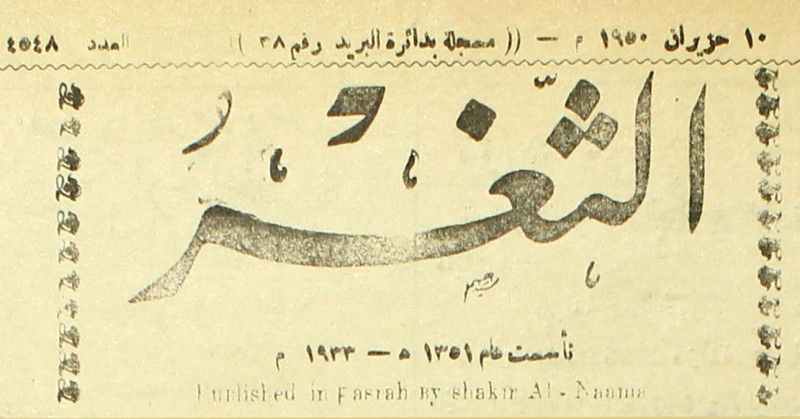 ١٠ حزيران ١٩٥٠ م — (( مسجلة بدائرة البريد رقم ٢٨ )) العدد ٤٥٤٨
الثغر
تأسست عام ١٣٥١ ه — ١٩٣٣ م
Published in Basrah By shakir Al - Naama